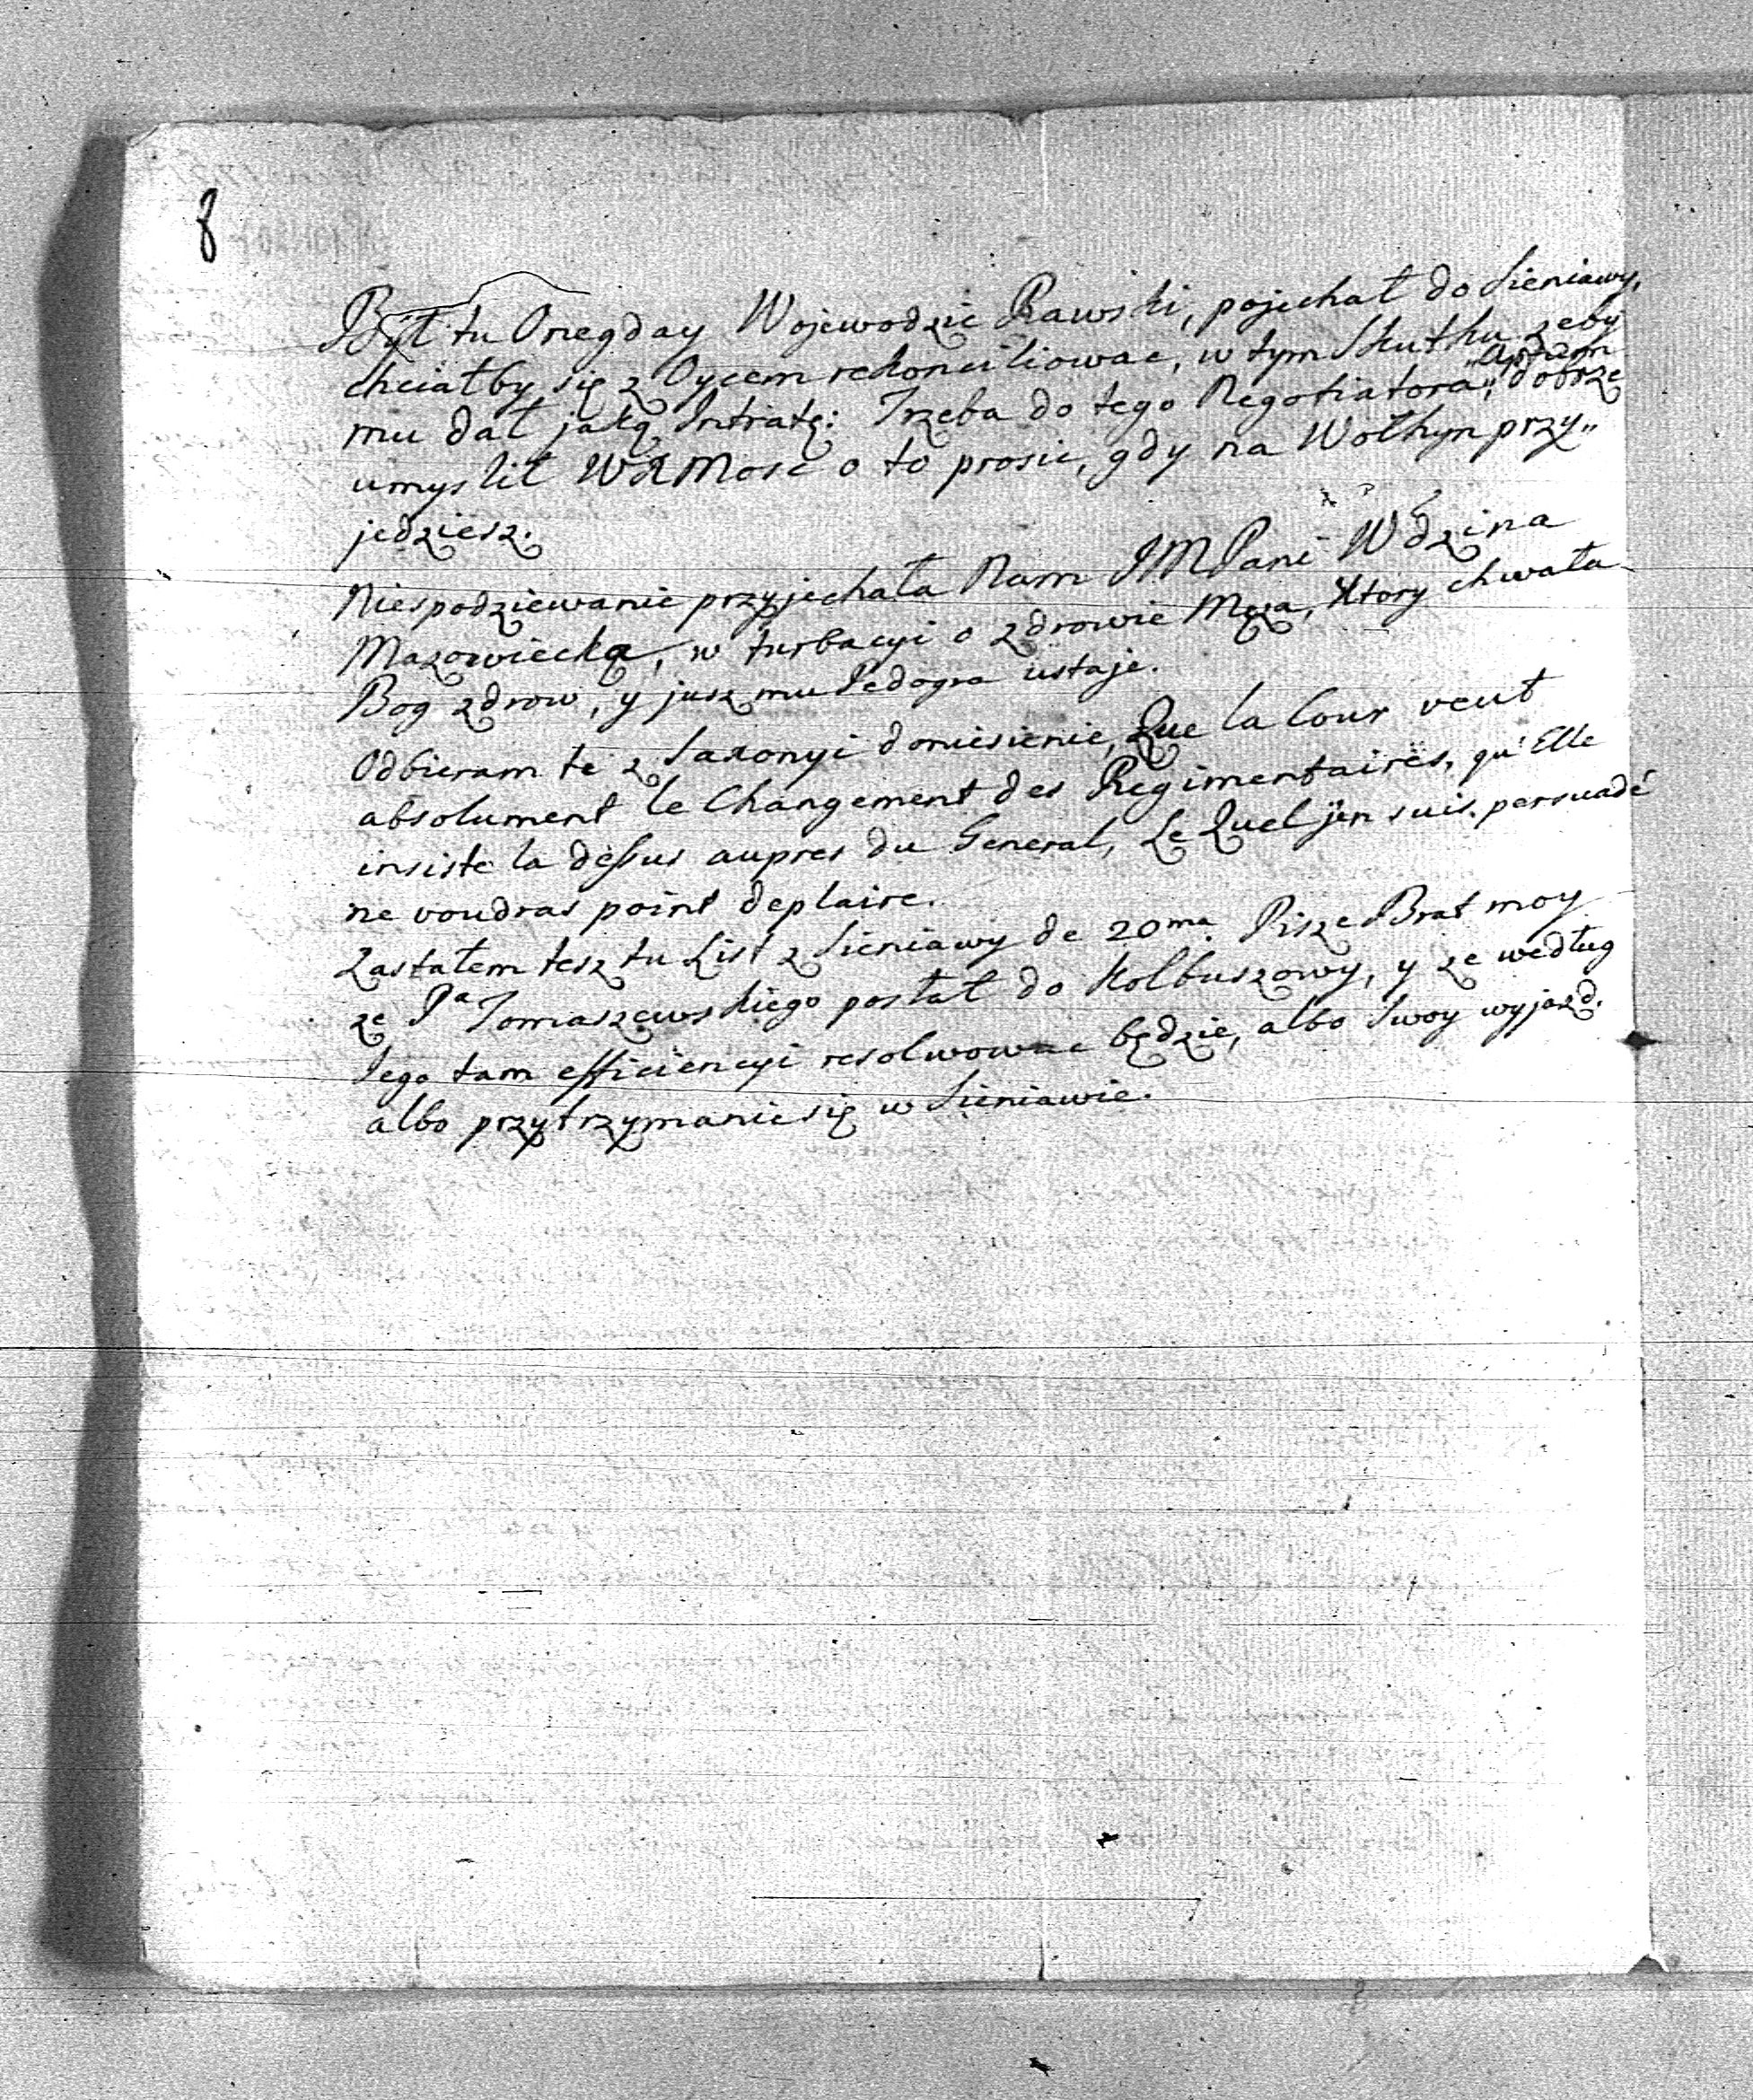 8
Był tu Onegday Wojewodzic Rawski, pojechał do Sieniawy,
chciałby się z Oycem rekonciliowac, w tym Skutku zeby
mu dał jaką Intratę: Trzeba do tego Negotiatora, Aptum dobrze
umyslil WXMosc o to prosic, gdy na Wołhyn przy„
jedziesz.
Niespodziewanie przyjechała Nam JMPani Wdzina
Mazowiecka, w turbacyi o zdrowie Męza, Ktory chwała
Bog zdrow, y jusz mu Pedogra ustaje.
Odbieram te z Saxonyi doniesienie, Que la Cour veut
absolument le Changement des Regimentaires, qu'Elle
insiste la dessus aupres du General, Le Quel j'en suis persuadé
ne voudras point deplaire.
Zastałem tesz tu List z Sieniawy de 20ma. Pisze Brat moy
ze Pa Tomaszewskiego posłał do Kolbuszowy, y ze według
Jego tam efficiencyi resolwowac będzie, albo Swoy wyjazd.
albo przytrzymanie się w Sieniawie.